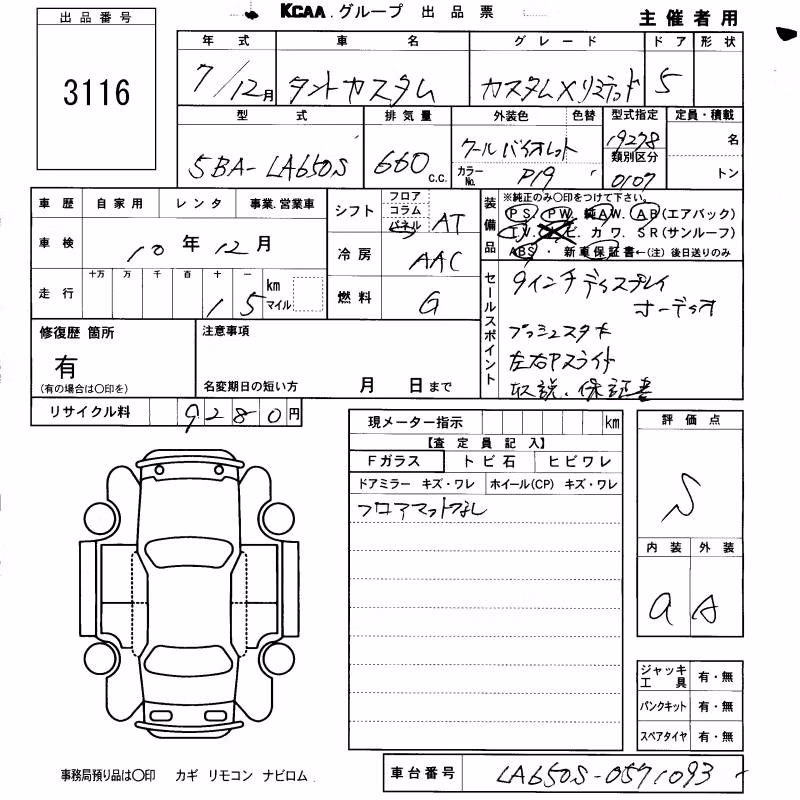 KCAA.グループ 出品票
主催者用
出品番号
3116
年式 車名 グレード ドア 形状
7/12月 タントカスタム カスタムXリミテッド 5
型式 排気量 外装色 色替 型式指定 定員・積載
5BA-LA650S 660 c.c. クールバイオレット 19278 名
カラーNo. P19 類別区分 0107 トン
車歴 自家用 レンタ 事業.営業車
車検 10年12月
走行 十万 万 千 百 十 一 km マイル
15
シフト フロア コラム パネル AT
冷房 AAC
燃料 G
装備品 ※純正のみ○印をつけて下さい。
PS. PW. 純AW. AB(エアバック)
カワ. SR(サンルーフ)
ABS. 新車保証書←(注)後日送りのみ
セールスポイント
9インチディスプレイ
オーディオ
プッシュスタート
左右Pスライド
取説.保証書
修復歴 箇所
有
(有の場合は○印を)
注意事項
名変期日の短い方 月 日まで
リサイクル料 9280円
現メーター指示 km
【査定員記入】
Fガラス トビ石 ヒビワレ
ドアミラー キズ・ワレ ホイール(CP) キズ・ワレ
フロアマットなし
評価点
S
内装 外装
a A
ジャッキ工具 有・無
パンクキット 有・無
スペアタイヤ 有・無
事務局預り品は○印 カギ リモコン ナビロム
車台番号 LA650S-0571093